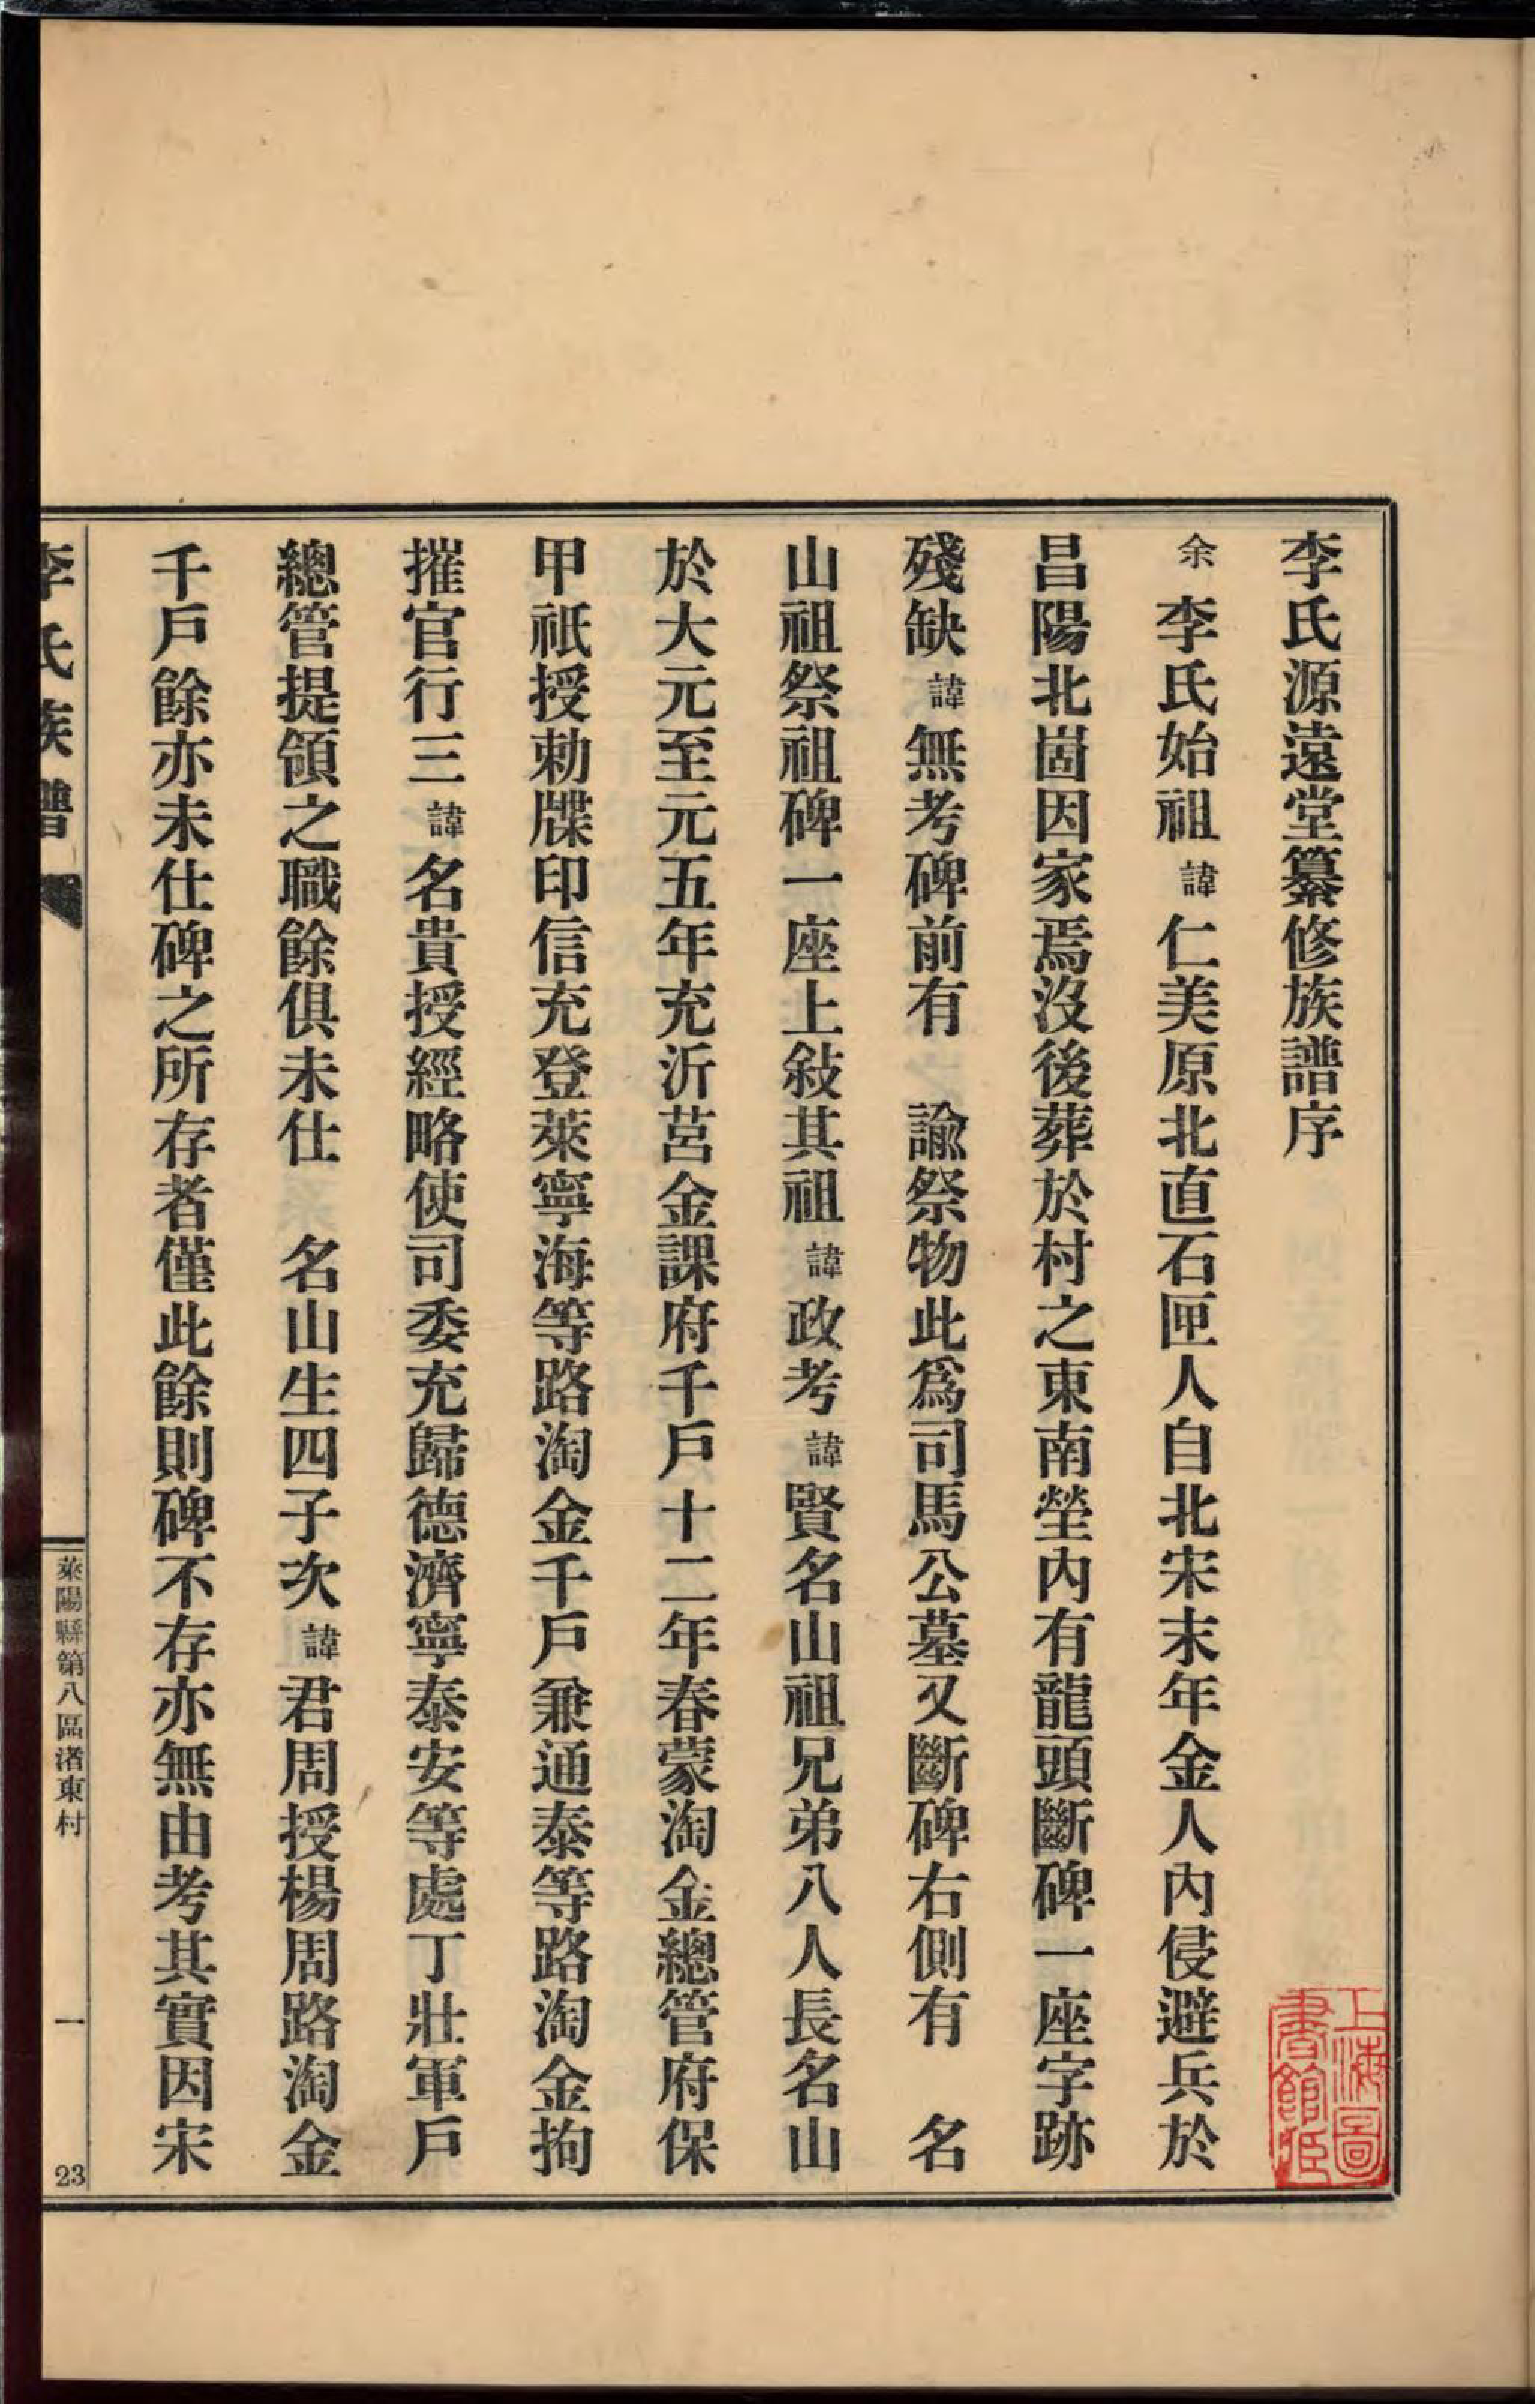 李氏源遠堂纂修族譜序
余李氏始祖諱仁美原北直石匣人自北宋末年金人內侵避兵於
昌陽北崮因家焉沒後葬於村之東南塋內有龍頭斷碑一座字跡
殘缺諱無考碑前有　諭祭物此爲司馬公墓又斷碑右側有　名
山祖祭祖碑一座上敍其祖諱政考諱賢名山祖兄弟八人長名山
於大元至元五年充沂莒金課府千戶十二年春蒙淘金總管府保
甲祇授勅牒印信充登萊寧海等路淘金千戶兼通泰等路淘金拘
摧官行三諱名貴授經略使司委充歸德濟寧泰安等處丁壯軍戶
總管提領之職餘俱未仕　名山生四子次諱君周授楊周路淘金
千戶餘亦未仕碑之所存者僅此餘則碑不存亦無由考其實因宋
李氏族譜
萊陽縣第八區渚東村
一
23
上海圖
書館藏